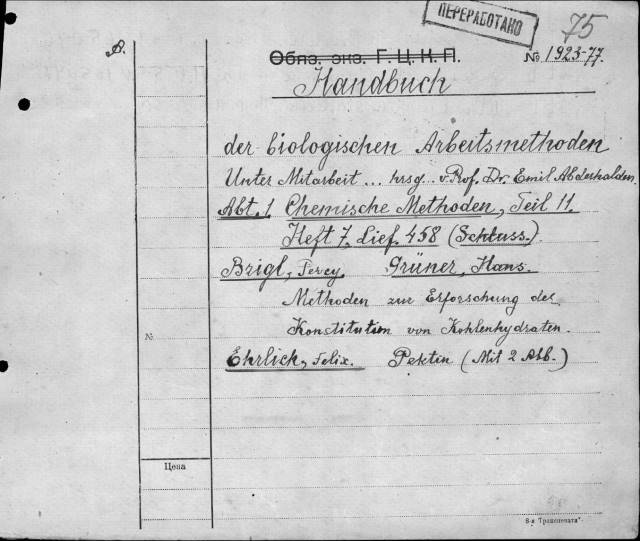 ПЕРЕРАБОТАНО
75
Обяз. экз. Г. Ц. К. П.
№ 1923-77.
Handbuch
der biologischen Arbeitsmethoden
Unter Mitarbeit ... hrsg. v. Prof. Dr. Emil Abderhalden.
Abt. 1. Chemische Methoden, Teil 11.
Heft 7. Lief. 458 (Schluss.)
Brigl, Percy. Grüner, Hans.
Methoden zur Erforschung der
№
Konstitution von Kohlenhydraten.
Ehrlich, Felix. Pektin (Mit 2 Abb.)
Цена